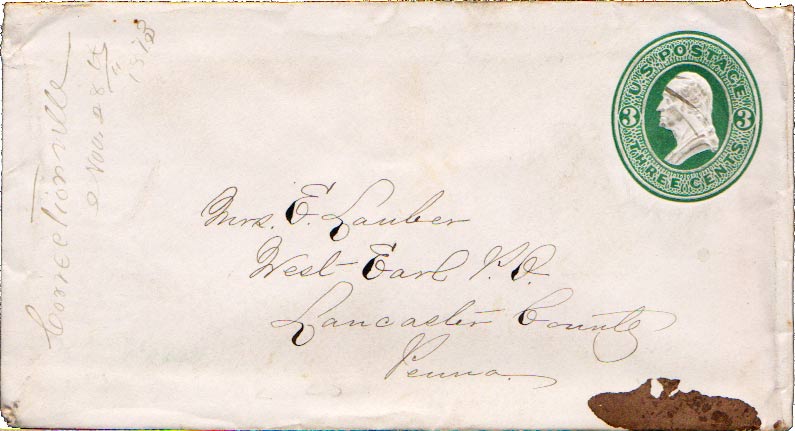 Connectionville
Nov. 28th
U.S. POSTAGE
3 3
THREE CENTS
Mrs. E. Lauber
West Earl P.O.
Lancaster County
Penna.